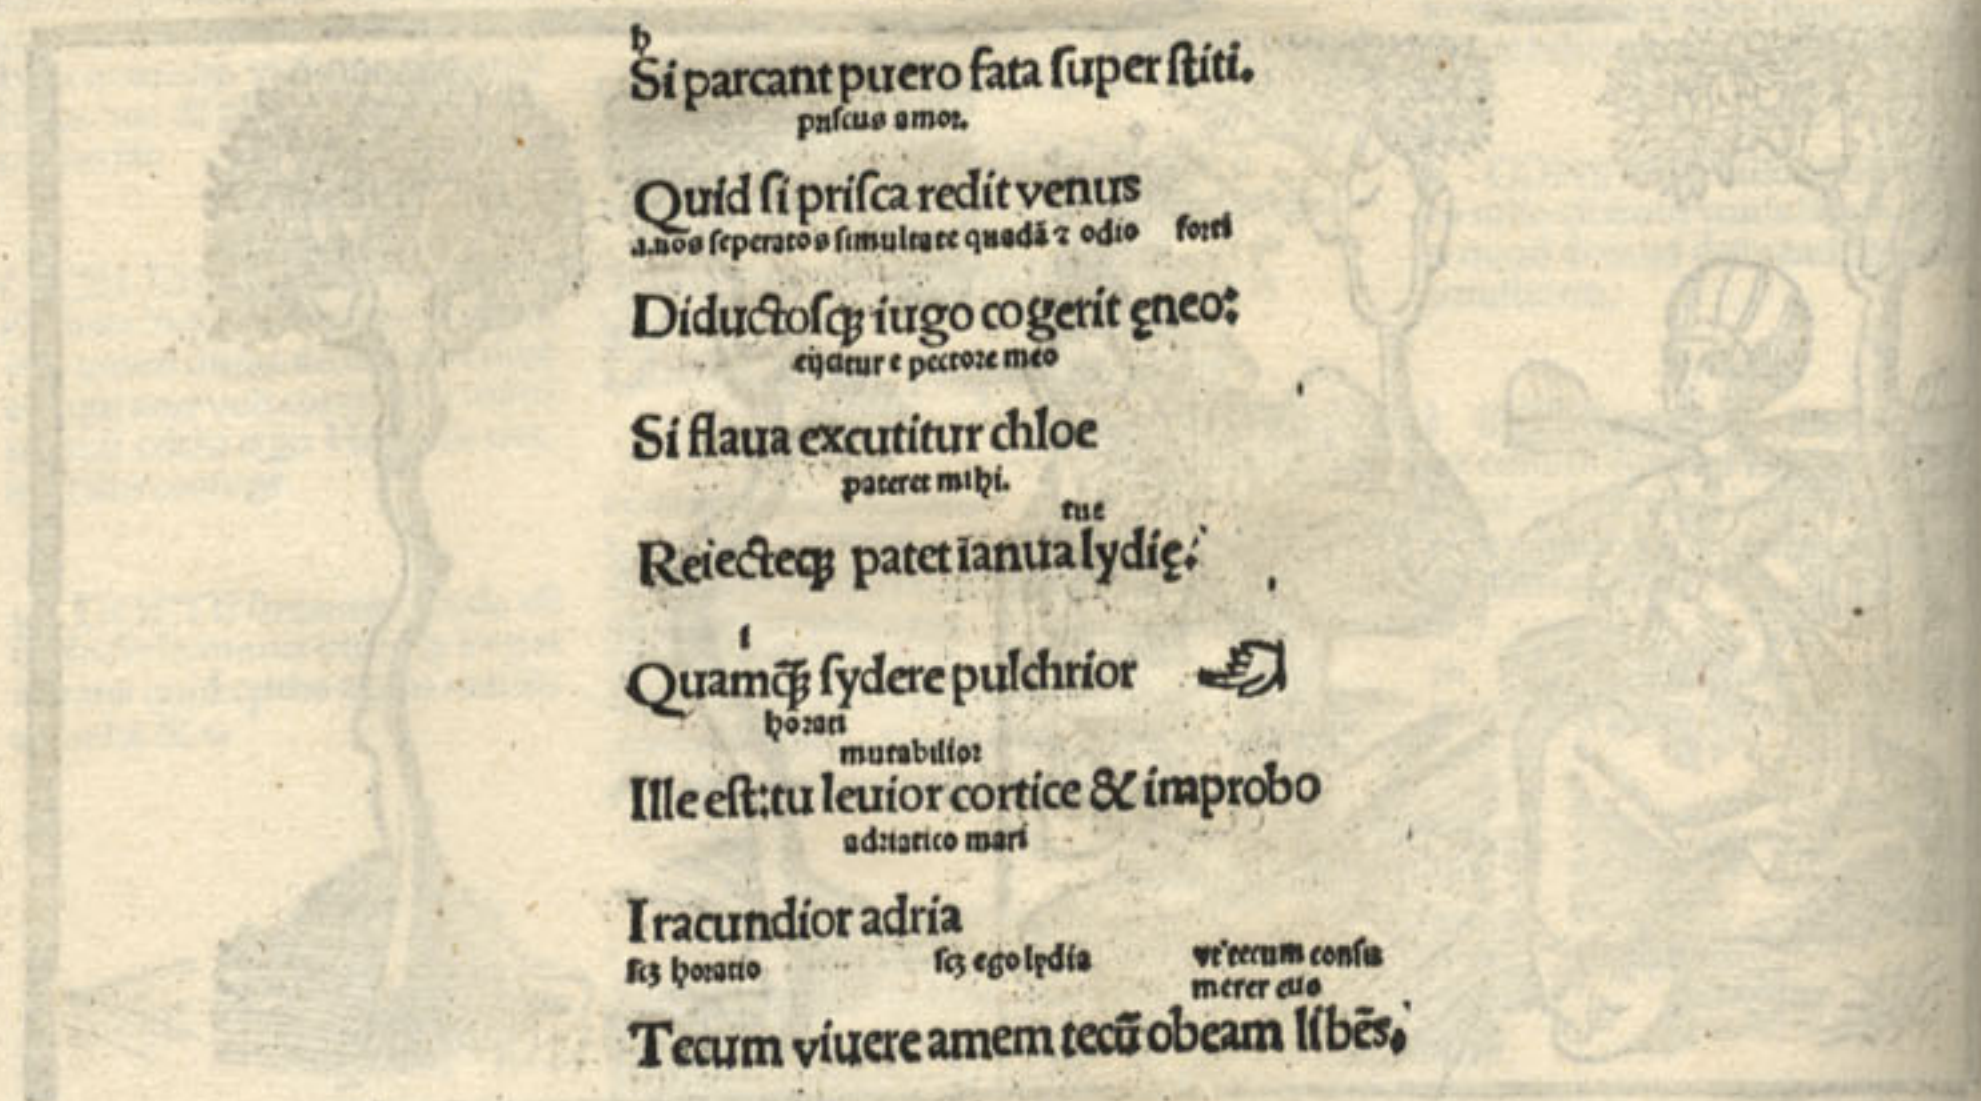 h
Si parcant puero fata ſuper ſtiti.
pꝛiſcus amoꝛ.
Quid ſi priſca redit venus
.i. nos ſeperatos ſimultate quadā ⁊ odio foꝛti
Diductoſqꝫ iugo co gerit ęneo:
eijcitur e pectoꝛe meo
Si flaua excutitur chloe
pateret mihi.
tue
Reiecteqꝫ patet ianua lydię.
i
Quamq̄ꝫ ſydere pulchrior
hoꝛati
mutabilioꝛ
Ille eſt:tu leuior cortice & improbo
adꝛiatico mari
I racundior adria
ſcꝫ hoꝛatio ſcꝫ ego lydia vt tecum conſu
merer euo
Tecum viuere amem tecū obeam libēs.